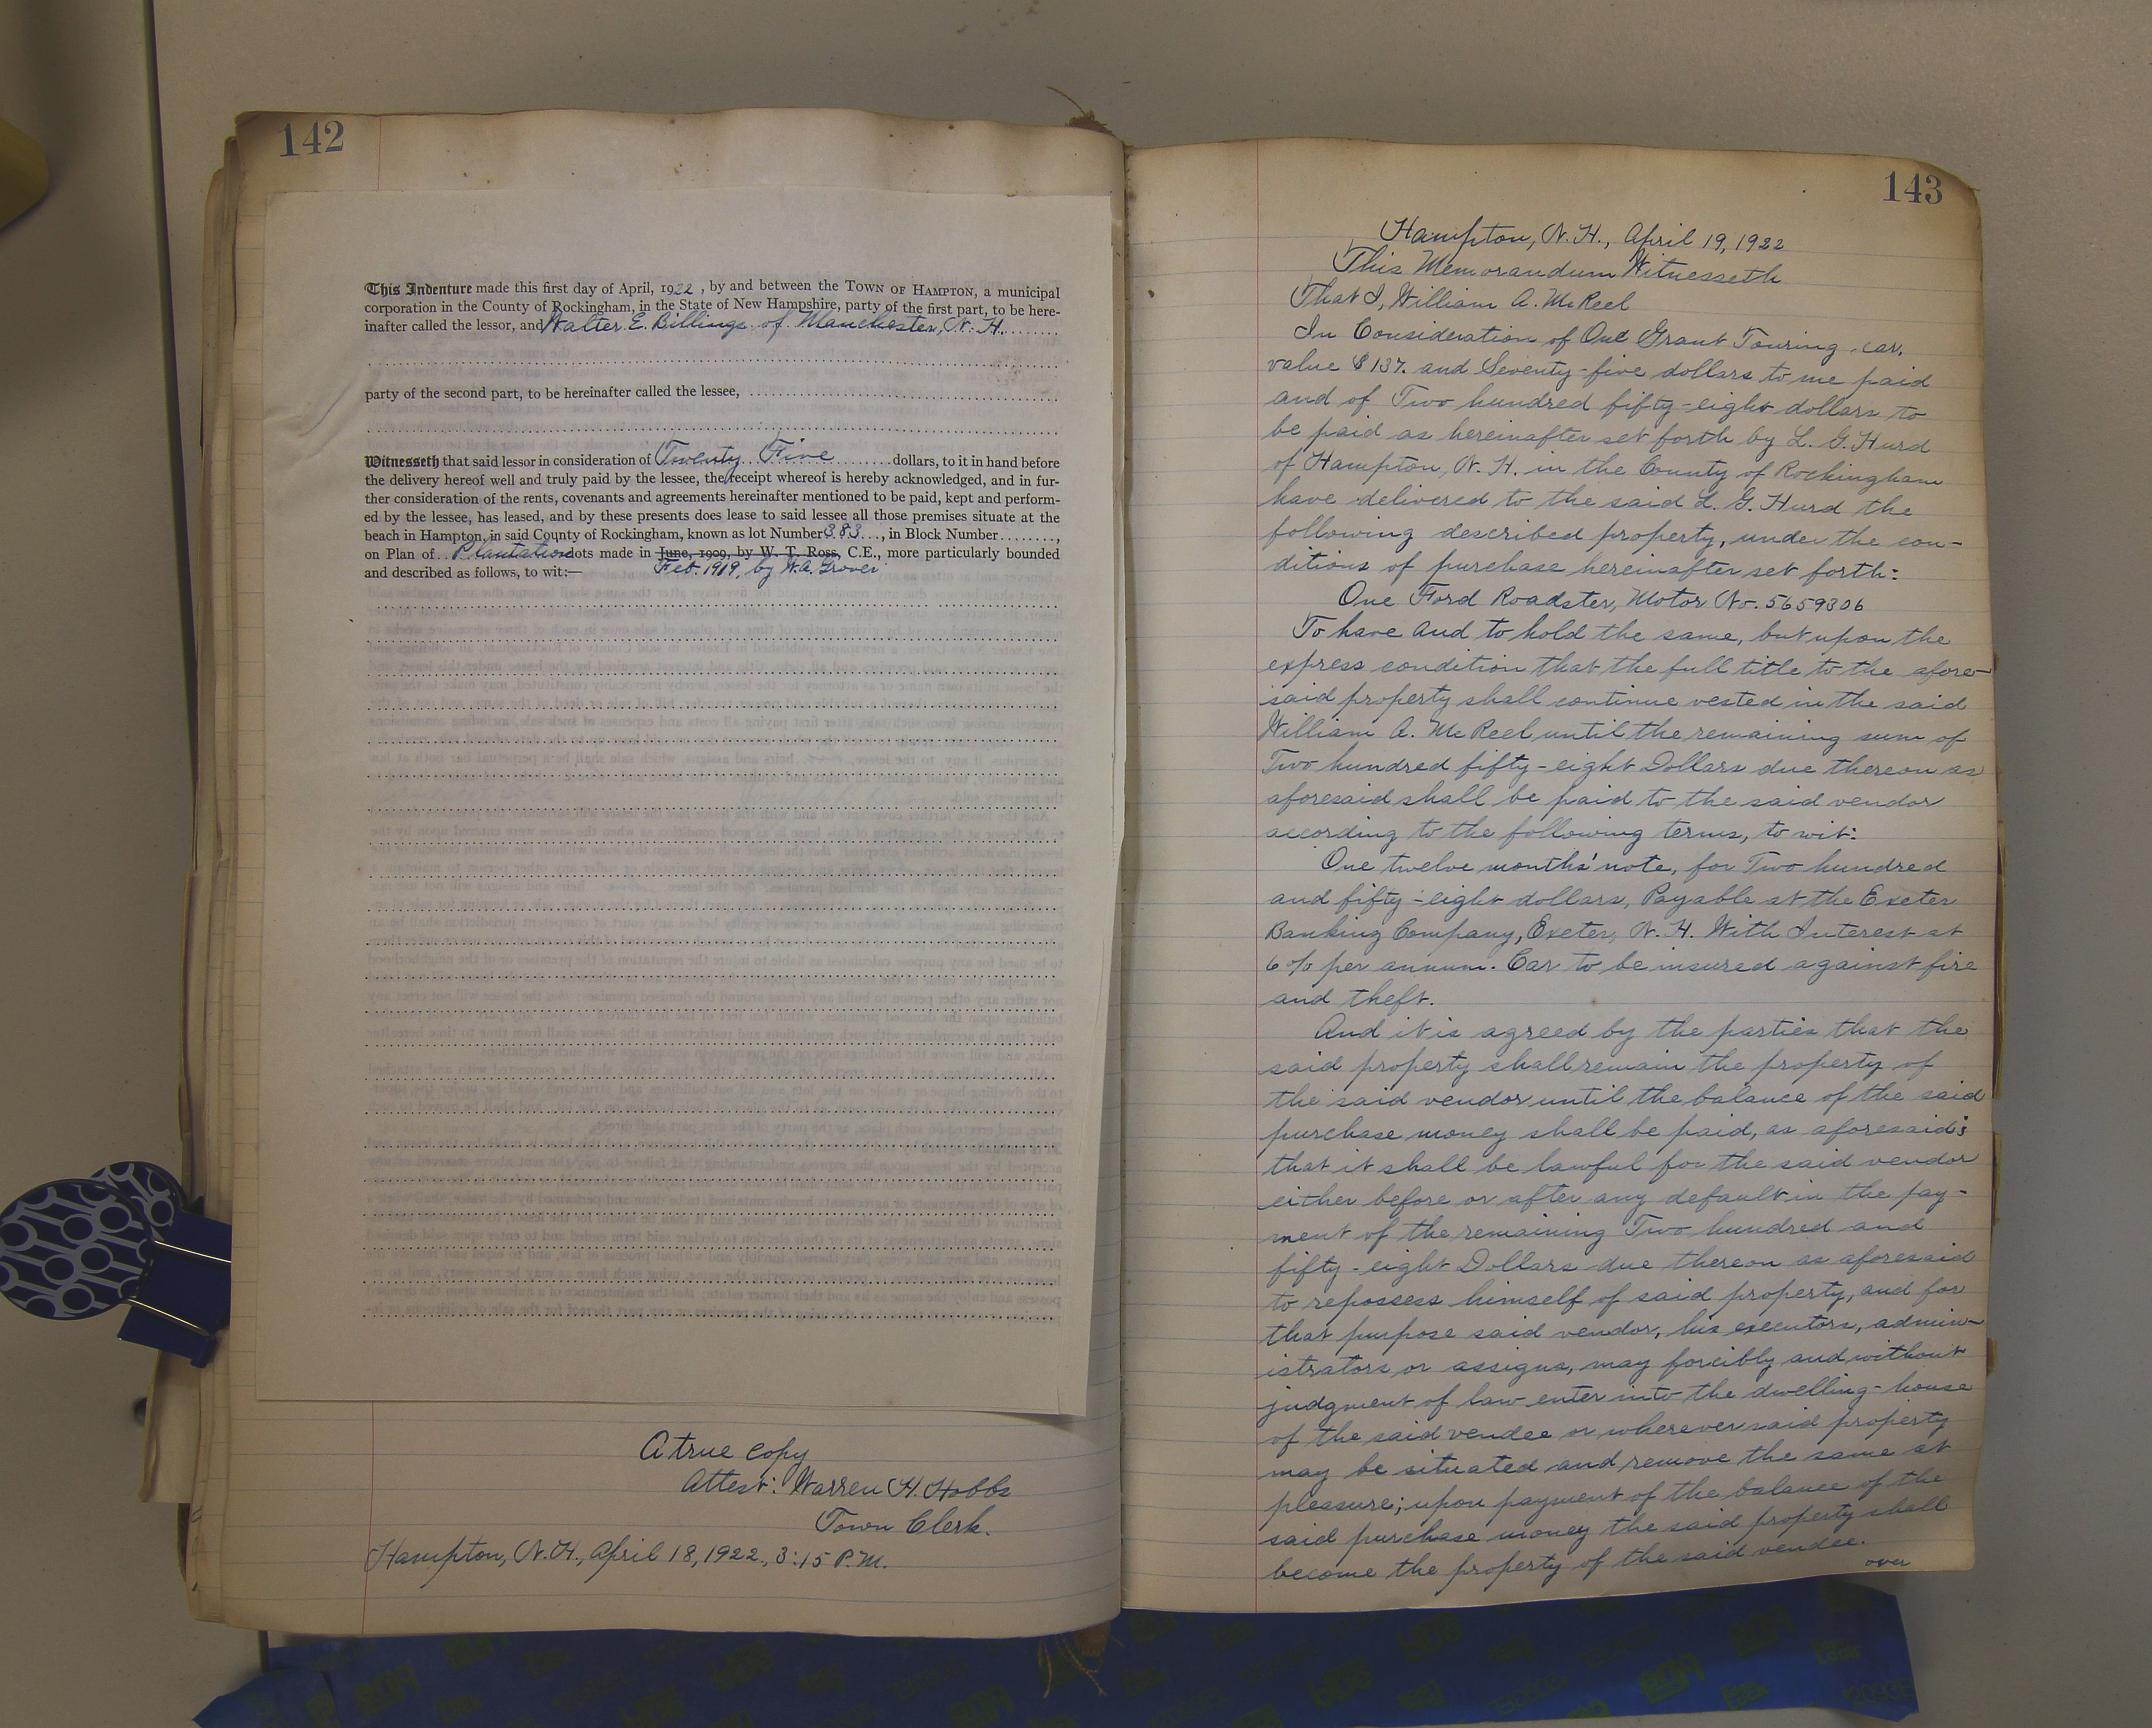 142
This Indenture made this first day of April, 1922, by and between the TOWN OF HAMPTON, a municipal
corporation in the County of Rockingham, in the State of New Hampshire, party of the first part, to be here-
inafter called the lessor, and Walter E. Billings of Manchester, N. H.
party of the second part, to be hereinafter called the lessee,
Witnesseth that said lessor in consideration of Twenty Five dollars, to it in hand before
the delivery hereof well and truly paid by the lessee, the receipt whereof is hereby acknowledged, and in fur-
ther consideration of the rents, covenants and agreements hereinafter mentioned to be paid, kept and perform-
ed by the lessee, has leased, and by these presents does lease to said lessee all those premises situate at the
beach in Hampton, in said County of Rockingham, known as lot Number 383, in Block Number........,
on Plan of Plantation lots made in June, 1909, by W. T. Ross, C.E., more particularly bounded
and described as follows, to wit:— Feb. 1919, by W.A. Grover
A true copy
Attest: Warren H. Hobbs
Town Clerk.
Hampton, N.H., April 18, 1922, 3:15 P.M.
143
Hampton, N.H., April 19, 1922
This Memorandum Witnesseth
That I, William A. McReel
In Consideration of One Grant Touring car,
value $137. and Seventy-five dollars to me paid
and of Two hundred fifty-eight dollars to
be paid as hereinafter set forth by L. G. Hurd
of Hampton, N. H. in the County of Rockingham
have delivered to the said L. G. Hurd the
following described property, under the con-
ditions of purchase hereinafter set forth:
One Ford Roadster, Motor No. 5659306
To have and to hold the same, but upon the
express condition that the full title to the afore-
said property shall continue vested in the said
William A. McReel until the remaining sum of
Two hundred fifty-eight Dollars due thereon as
aforesaid shall be paid to the said vendor
according to the following terms, to wit:
One twelve months' note, for Two hundred
and fifty-eight dollars, Payable at the Exeter
Banking Company, Exeter, N. H. With Interest at
6% per annum. Car to be insured against fire
and theft.
And it is agreed by the parties that the
said property shall remain the property of
the said vendor until the balance of the said
purchase money shall be paid, as aforesaid;
that it shall be lawful for the said vendor
either before or after any default in the pay-
ment of the remaining Two hundred and
fifty-eight Dollars due thereon as aforesaid
to repossess himself of said property, and for
that purpose said vendor, his executors, admin-
istrators or assigns, may forcibly and without
judgment of law enter into the dwelling-house
of the said vendee or wherever said property
may be situated and remove the same at
pleasure; upon payment of the balance of the
said purchase money the said property shall
become the property of the said vendee.
over